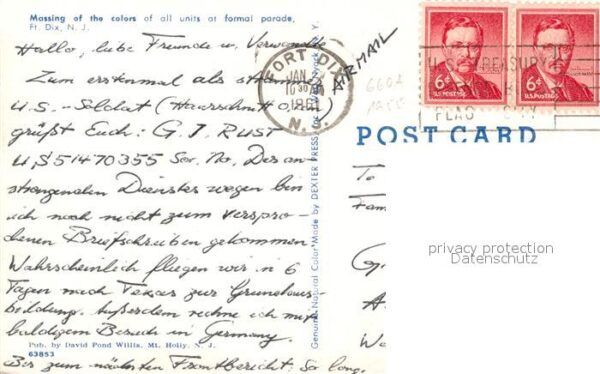 Massing of the colors of all units at formal parade,
Ft. Dix, N. J.
Hallo, liebe Freunde u. Verwandte
Zum erstenmal als
U.S.-Soldat (Haarschnitt
grüßt Euch: G. I. RUST
US 51470355 Ser. No. Des an-
strengenden Dienstes wegen bin
ich noch nicht zum verspro-
chenen Briefschreiben gekommen.
Wahrscheinlich fliegen wir in 6
Tagen nach Texas zur Grundaus-
bildung. Außerdem rechne ich mit
baldigem Besuch in Germany.
Pub. by David Pond Willis, Mt. Holly, N. J.
63853
Bis zum nächsten Frontbericht: So long.
Genuine Natural Color Made by DEXTER PRESS
FORT DIX
JAN
10 30
N. J.
AIRMAIL
6¢ U.S. POSTAGE
6¢ U.S. POSTAGE
U.S. TREASURY
FLAG
POST CARD
To
Fam
privacy protection
Datenschutz